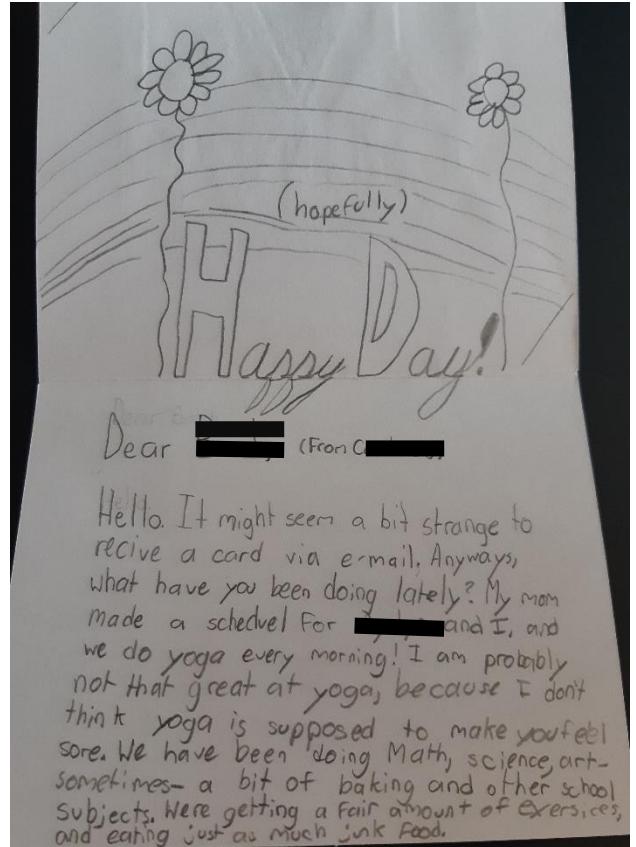 (hopefully)
Happy Day!
Dear (From C
Hello. It might seem a bit strange to
recive a card via e-mail. Anyways,
what have you been doing lately? My mom
made a schedvel for and I, and
we do yoga every morning! I am probably
not that great at yoga, because I don't
think yoga is supposed to make you feel
sore. We have been doing Math, science, art-
sometimes- a bit of baking and other school
subjects. Were getting a fair amount of exersices,
and eating just as much junk food.